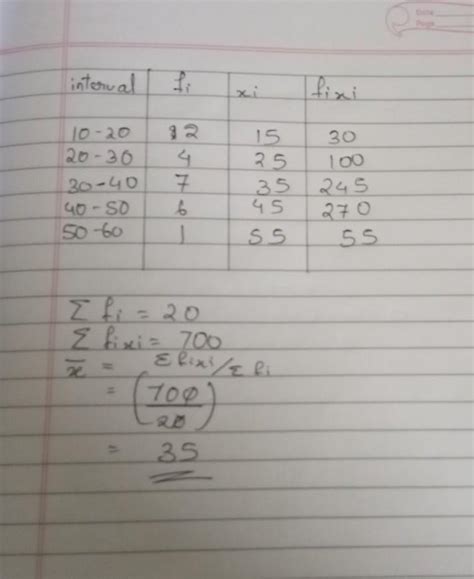 Date
Page
interval fi xi fixi
10-20 2 15 30
20-30 4 25 100
30-40 7 35 245
40-50 6 45 270
50-60 1 55 55
Σ fi = 20
Σ fixi = 700
x̄ = Σ fixi / Σ fi
= (700/20)
= 35